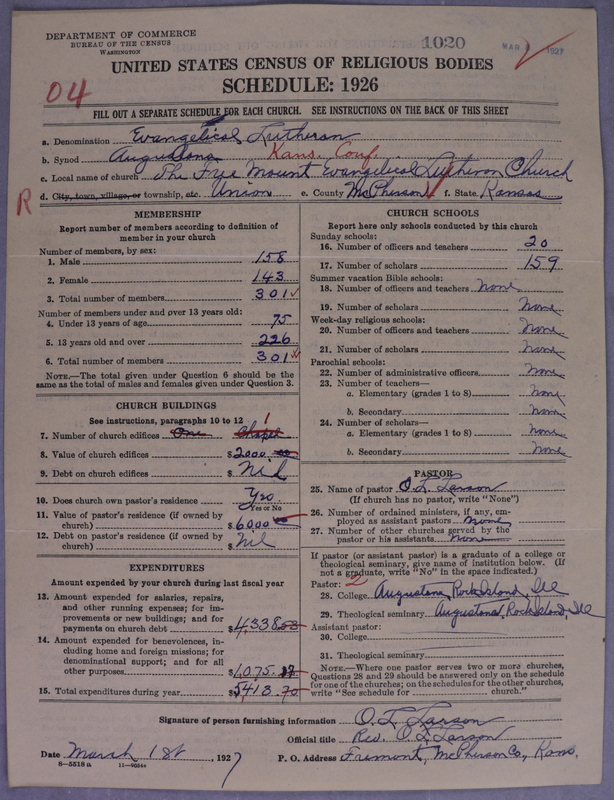 DEPARTMENT OF COMMERCE
BUREAU OF THE CENSUS
WASHINGTON
1020
MAR 1927
UNITED STATES CENSUS OF RELIGIOUS BODIES
SCHEDULE: 1926
04
FILL OUT A SEPARATE SCHEDULE FOR EACH CHURCH. SEE INSTRUCTIONS ON THE BACK OF THIS SHEET
a. Denomination Evangelical Lutheran
b. Synod Augustana Kans. Conf.
c. Local name of church The Free Mount Evangelical Lutheran Church
R
d. City, town, village, or township, etc. Union e. County McPherson f. State, Kansas
MEMBERSHIP
Report number of members according to definition of member in your church
Number of members, by sex:
1. Male 158
2. Female 143
3. Total number of members 301
Number of members under and over 13 years old:
4. Under 13 years of age 75
5. 13 years old and over 226
6. Total number of members 301
NOTE.—The total given under Question 6 should be the same as the total of males and females given under Question 3.
CHURCH BUILDINGS
See instructions, paragraphs 10 to 12
7. Number of church edifices One Chapel 1
8. Value of church edifices $2000.00
9. Debt on church edifices $Nil
10. Does church own pastor's residence Yes
Yes or No
11. Value of pastor's residence (if owned by church) $6000.00
12. Debt on pastor's residence (if owned by church) $Nil
EXPENDITURES
Amount expended by your church during last fiscal year
13. Amount expended for salaries, repairs, and other running expenses; for improvements or new buildings; and for payments on church debt $4,338.53
14. Amount expended for benevolences, including home and foreign missions; for denominational support; and for all other purposes $1,075.17
15. Total expenditures during year $5413.70
CHURCH SCHOOLS
Report here only schools conducted by this church
Sunday schools:
16. Number of officers and teachers 20
17. Number of scholars 159
Summer vacation Bible schools:
18. Number of officers and teachers None
19. Number of scholars None
Week-day religious schools:
20. Number of officers and teachers None
21. Number of scholars None
Parochial schools:
22. Number of administrative officers None
23. Number of teachers—
a. Elementary (grades 1 to 8) None
b. Secondary None
24. Number of scholars—
a. Elementary (grades 1 to 8) None
b. Secondary None
PASTOR
25. Name of pastor O. L. Larson
(If church has no pastor, write "None")
26. Number of ordained ministers, if any, employed as assistant pastors none
27. Number of other churches served by the pastor or his assistants none
If pastor (or assistant pastor) is a graduate of a college or theological seminary, give name of institution below. (If not a graduate, write "No" in the space indicated.)
Pastor: 2
28. College Augustana, Rock Island, Ill
29. Theological seminary Augustana, Rock Island, Ill
Assistant pastor:
30. College
31. Theological seminary
NOTE.—Where one pastor serves two or more churches, Questions 28 and 29 should be answered only on the schedule for one of the churches; on the schedules for the other churches, write "See schedule for church."
Signature of person furnishing information O. L. Larson
Official title Rev. O. L. Larson
Date March 1st, 1927 P. O. Address Fremont, McPherson Co., Kans.
8—5518 a 11—9054